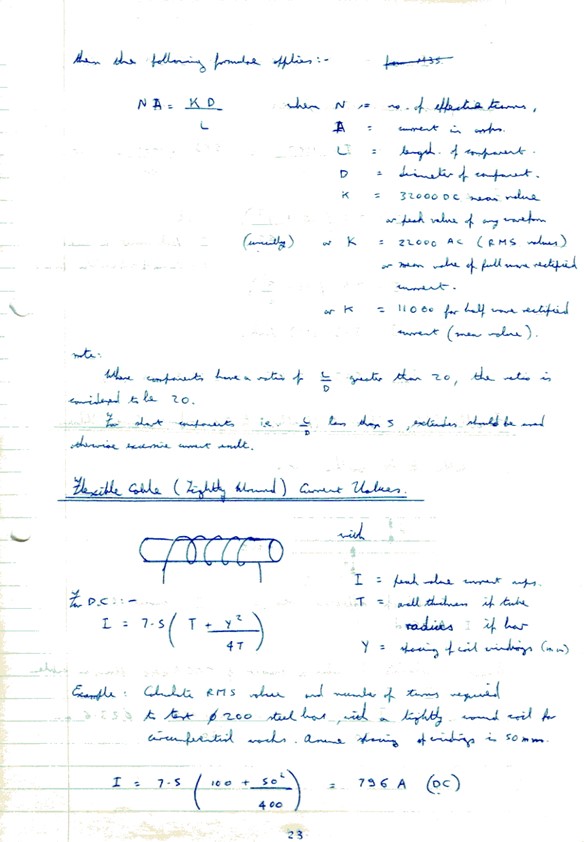 then the following formulae applies:-
NA = KD / L when N := no. of effective turns,
A = current in amps.
L = length of component.
D = diameter of component.
K = 32000 DC mean value
or peak value of any waveform
or K = 22000 AC (RMS values)
or mean value of full wave rectified
current.
or K = 11000 for half wave rectified
current (mean value).
note:
Where components have a ratio of L/D greater than 20, the ratio is
considered to be 20.
For short components i.e. L/D less than 5, extenders should be used
otherwise excessive current result.
Flexible Cable (Tightly Wound) Current Values.
with
I = peak value current amps.
For D.C.:- T = wall thickness if tube
I = 7.5 ( T + Y² / 4T ) radius if bar
Y = spacing of coil windings (mm)
Example: Calculate RMS value and number of turns required
to test ϕ 200 steel bar, with a tightly wound coil for
circumferential cracks. Assume spacing of windings is 50mm.
I = 7.5 ( 100 + 50² / 400 ) = 796 A (DC)
23